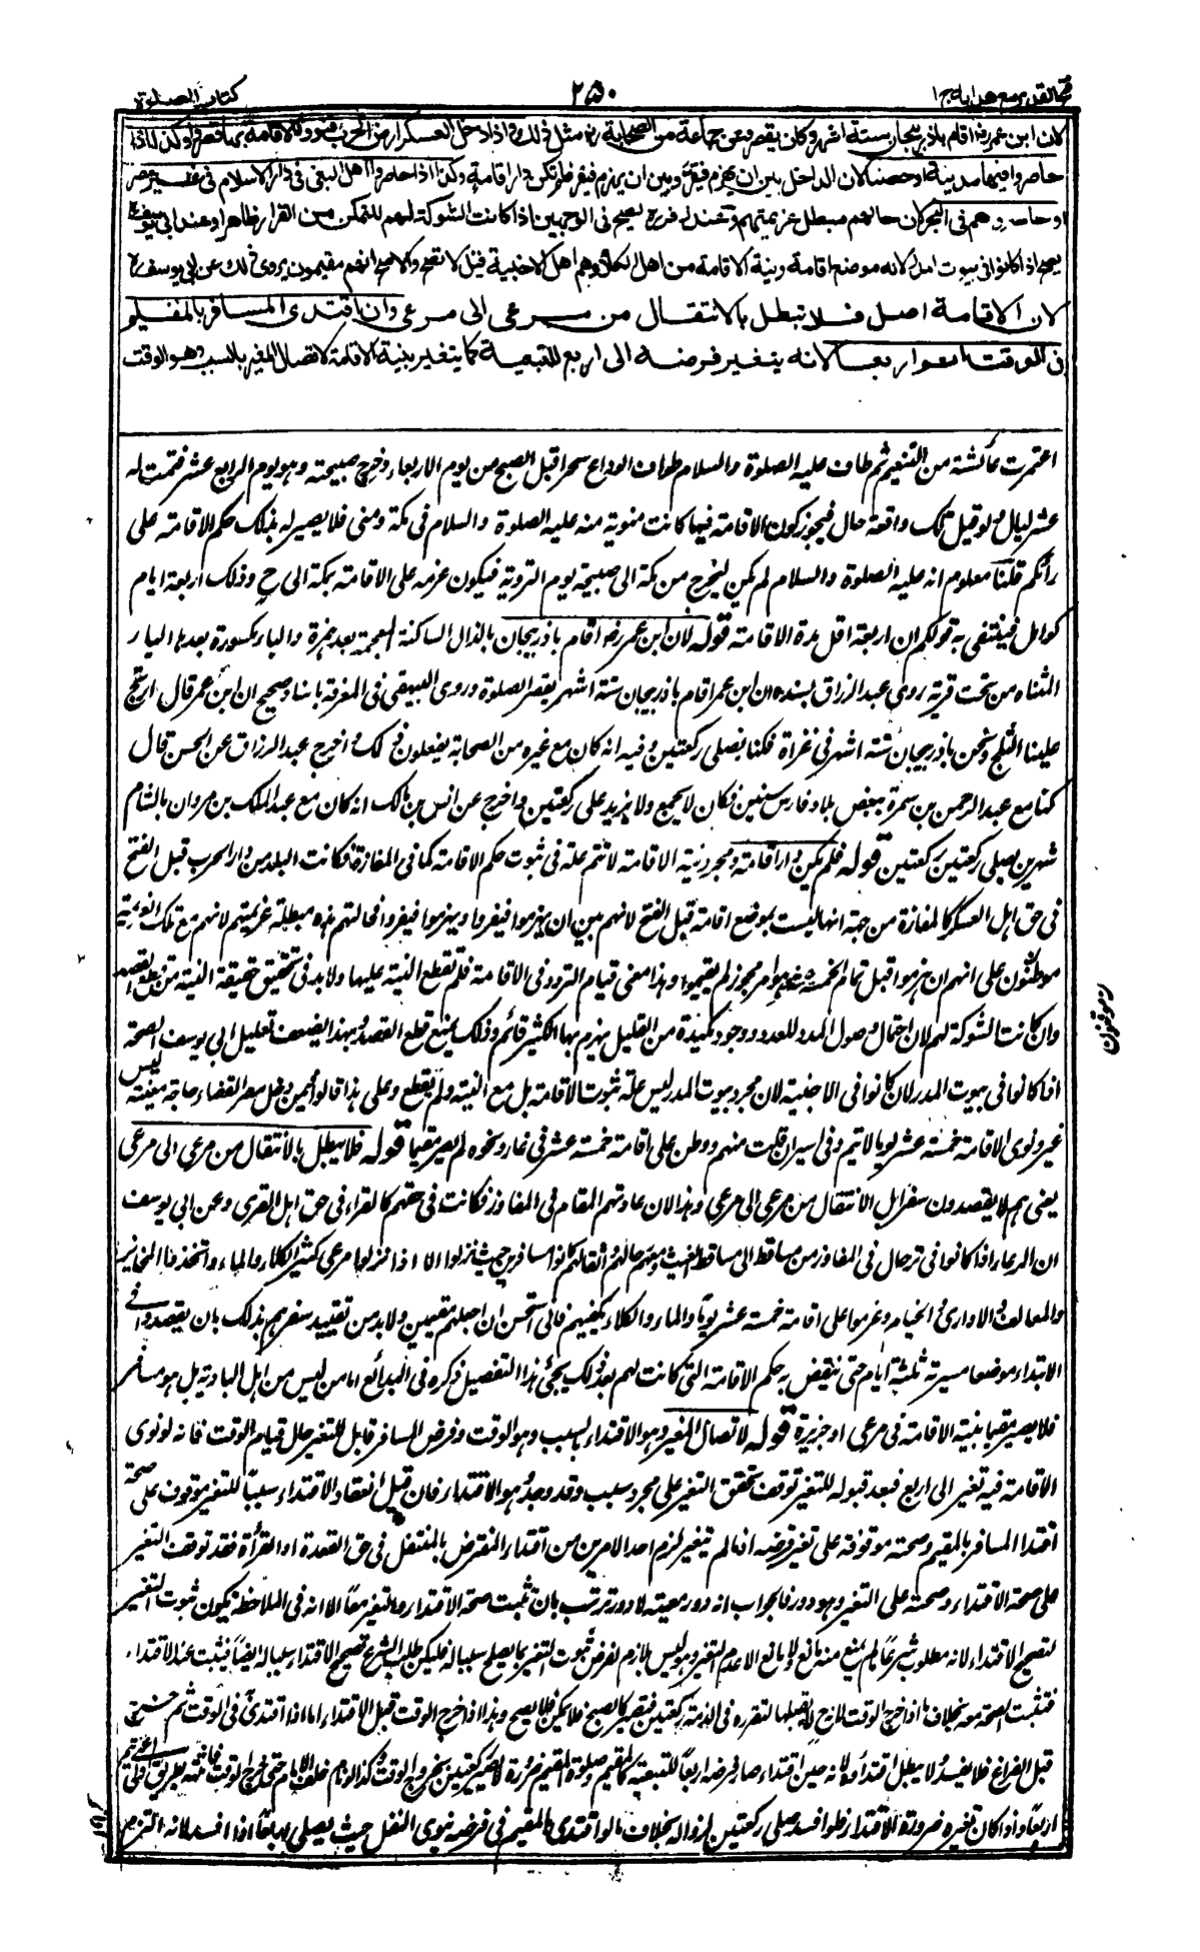 فتح القدير مع هدايه ج ا
٢٥٠
كتاب الصلوة
كان ابن عمر رض اقام باذربيجان ستة اشهر وكان يقصر وعن جماعة من الصحابة رض مثل ذلك واذا دخل العسكر ارض الحرب فنووا الاقامة بها قصروا وكذا اذا
حاصروا فيها مدينة او حصنا لان الداخل بين ان يهزم فيقر وبين ان ينهزم فيفر فلم تكن دار اقامة وكذا اذا حاصروا اهل البغى فى دار الاسلام فى غير مصر
او حاصروهم فى البحر لان حالهم مبطل عزيمتهم وعند زفر رح يصح فى الوجهين اذا كانت الشوكة لهم للتمكن من القرار ظاهرا وعند ابى يوسف رح
يصح اذا كانوا فى بيوت المدر لانه موضع اقامة ونية الاقامة من اهل الكلأ وهم اهل الاخبية قيل لا تصح والاصح انهم مقيمون يروى ذلك عن ابى يوسف رح
لان الاقامة اصل فلا تبطل بالانتقال من مرعى الى مرعى وان اقتدى المسافر بالمقيم
فى الوقت اتم اربعا لانه يتغير فرضه الى اربع للتبعية كما يتغير بنية الاقامة لاتصال المغير بالسبب وهو الوقت
اعتمرت عائشة من التنعيم ثم طاف عليه الصلوة والسلام طواف الوداع سحرا قبل الصبح من يوم الاربعاء وخرج صبيحته وهو يوم الرابع عشر فتمت له
عشر ليال ولو قيل تلك واقعة حال فيجوز كون الاقامة فيها كانت منوية منه عليه الصلوة والسلام فى مكة ومنى فلا يصير له بذلك حكم الاقامة على
رأيكم قلنا معلوم انه عليه الصلوة والسلام لم يكن ليخرج من مكة الى صبيحة يوم التروية فيكون عزمه على الاقامة بمكة الى ح وذلك اربعة ايام
كوامل فينتفى به قولكم ان اربعة اقل مدة الاقامة قوله لان ابن عمر رض اقام باذربيجان بالذال الساكنة المعجمة بعد همزة والباء مكسورة بعدها الياء
المثناة من تحت قرية روى عبد الرزاق بسنده ان ابن عمر اقام باذربيجان ستة اشهر يقصر الصلوة وروى البيهقى فى المعرفة باسناد صحيح ان ابن عمر قال ارتج
علينا الثلج ونحن باذربيجان ستة اشهر فى غزاة فكنا نصلى ركعتين وفيه انه كان مع غيره من الصحابة يفعلون ذلك واخرج عبد الرزاق عن الحسن قال
كنا مع عبد الرحمن بن سمرة ببعض بلاد فارس سنين فكان لا يجمع ولا يزيد على ركعتين واخرج عن انس بن مالك انه كان مع عبد الملك بن مروان بالشام
شهرين يصلى ركعتين ركعتين قوله فلم يكن دار اقامة ومجرد نية الاقامة لا تتم علة فى ثبوت حكم الاقامة كما فى المفازة فكانت البلد من دار الحرب قبل الفتح
فى حق اهل العسكر كالمفازة من جهة انها ليست بموضع اقامة قبل الفتح لانهم بين ان يهزموا فيقروا او يهزموا فيفروا فحالتهم هذه مبطلة عزيمتهم لانهم مع تلك العزيمة
موطنون على انهم ان هزموا قبل تمام الخمسة عشر وهو امر مجوز لم يقيموا وهذا معنى قيام التردد فى الاقامة فلم تقطع النية عليها ولا بد فى تحقيق حقيقة النية من قطع القصد
وان كانت الشوكة لهم لان احتمال وصول المدد للعدو ووجود مكيدة من القليل يهزم بها الكثير قائم وذلك يمنع قطع القصد وبهذا يضعف تعليل ابى يوسف الصحة
اذا كانوا فى بيوت المدر لا ان كانوا فى الاخبية لان مجرد بيوت المدر ليس علة ثبوت الاقامة بل مع النية ولم تقطع وعلى هذا قالوا فيمن دخل مصر القضاء حاجة معينة ليس
غير ونوى الاقامة خمسة عشر يوما لا يتم وفى اسير انفلت منهم ووطن على اقامة خمسة عشر فى غار ونحوه لم يصر مقيما قوله فلا يبطل بالانتقال من مرعى الى مرعى
يعنى هم لا يقصدون سفرا بل الانتقال من مرعى الى مرعى وهذا لان عادتهم المقام فى المفاوز فكانت فى حقهم كالقرى فى حق اهل القرى وعن ابى يوسف
ان الرعاء اذا كانوا فى ترحال فى المفاوز من مساقط الى مساقط الغيث ومعهم رحالهم واثقالهم كانوا مسافرين حيث نزلوا الا اذا نزلوا مرعى كثير الكلاء والماء واتخذوا المخابز
والمعالف والاوارى والخيام وعزموا على اقامة خمسة عشر يوما والماء والكلاء يكفيهم فانى استحسن ان اجعلهم مقيمين ولا بد من تقييد سفرهم بذلك بان يقصدوا فى
الابتداء موضعا مسيرته ثلثة ايام حتى ينتقض به حكم الاقامة التى كانت لهم بعد ذلك يجئ هذا التفصيل ذكره فى البدائع اما من ليس من اهل البادية بل هو مسافر
فلا يصير مقيما بنية الاقامة فى مرعى او جزيرة قوله لاتصال المغير وهو الاقتداء بالسبب وهو الوقت وفرض المسافر قابل للتغير حال قيام الوقت فانه لو نوى
الاقامة فيه تغير الى اربع فبعد قبوله للتغير توقف تحقق التغير على مجرد سبب وقد وجد وهو الاقتداء فان قيل انعقاد الاقتداء سببا للتغير موقوف على صحة
اقتداء المسافر بالمقيم وصحته موقوفة على تغير فرضه اذ ما لم يتغير لزم احد الامرين من اقتداء المفترض بالمتنفل فى حق القعدة او القرأة فقد توقف التغير
على صحة الاقتداء وصحته على التغير وهو دور فالجواب انه دور معية لا دور ترتب بان تثبت صحة الاقتداء والتغير معا الا انه فى الملاحظة يكون ثبوت التغير
لتصحيح الاقتداء لانه مطلوب شرعا ما لم يمنع منه مانع ولا مانع الا عدم التغير وهو ليس بلازم لفرض ثبوت التغير بما يصلح سببا له فليكن طلب الشرع تصحيح الاقتداء سببا له ايضا فيثبت عند الاقتداء
فتثبت الصحة معه بخلاف ما اذا خرج الوقت لانه ح لا يقبلها لتقرره فى الذمة ركعتين فيصير كالصبح فلا يمكن فلا يصح وهذا اذا خرج الوقت قبل الاقتداء اما اذا اقتدى فى الوقت ثم خرج
قبل الفراغ فلا يفسد ولا يبطل اقتداؤه لانه حين اقتداء صار فرضه اربعا للتبعية كالمقيم وصلوة المقيم لا تصير ركعتين بخروج الوقت وكذا لو نام خلف الامام حتى خرج الوقت
اربعا واذا كان تغيره ضرورة الاقتداء فلو افسد صلى ركعتين لزواله بخلاف ما لو اقتدى بالمقيم فى فرضه ينوى النفل حيث يصلى اربعا اذا افسد لانه التزم